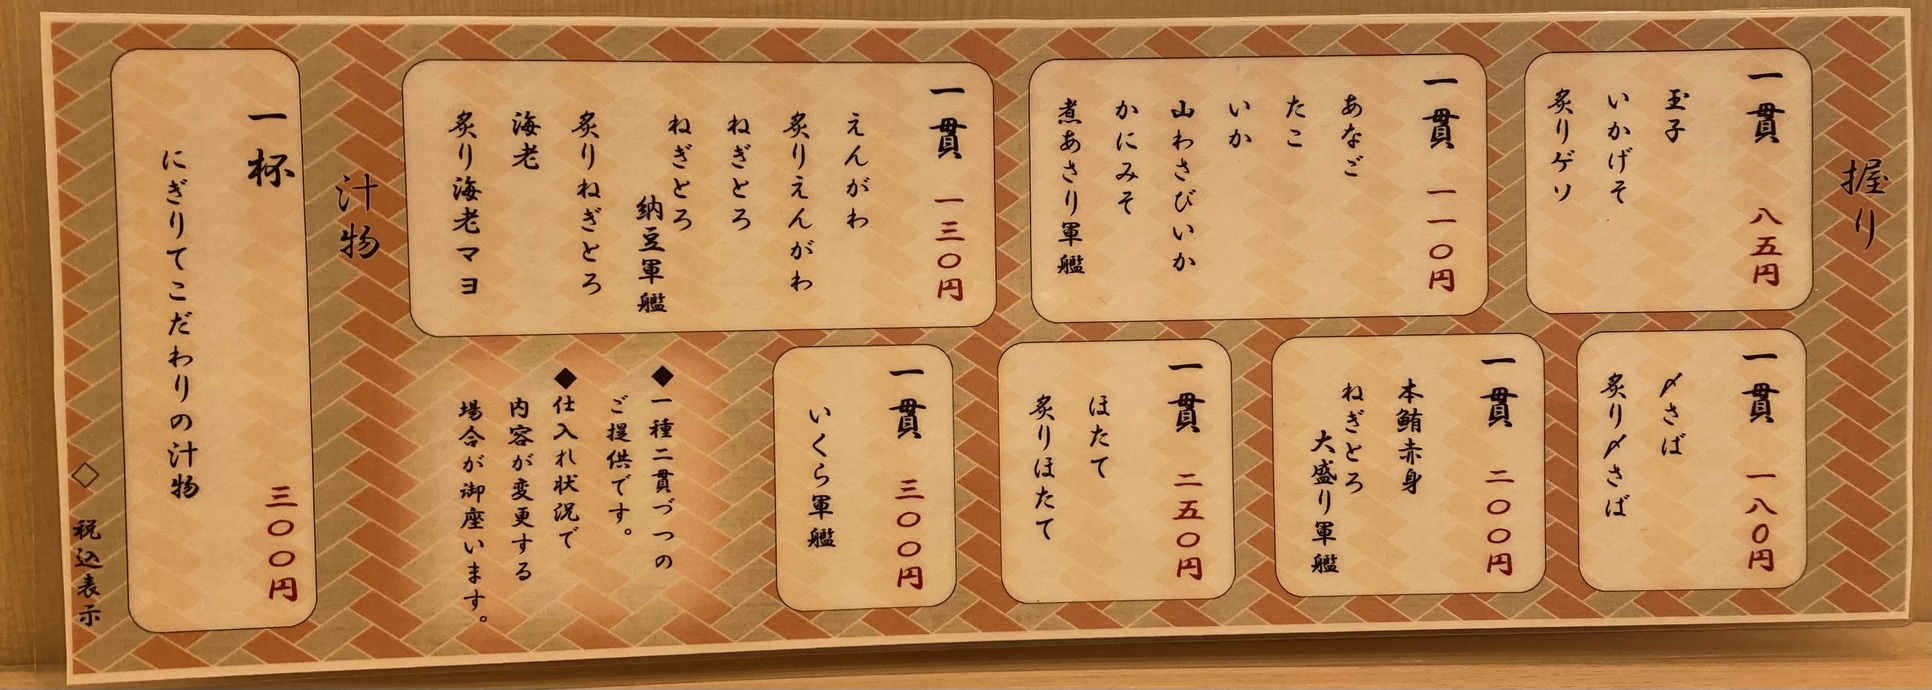 握り
一貫 八五円
玉子
いかげそ
炙りゲソ
一貫 一一〇円
あなご
たこ
いか
山わさびいか
かにみそ
煮あさり軍艦
一貫 一三〇円
えんがわ
炙りえんがわ
ねぎとろ
ねぎとろ
納豆軍艦
炙りねぎとろ
海老
炙り海老マヨ
一貫 一八〇円
〆さば
炙り〆さば
一貫 二〇〇円
本鮪赤身
ねぎとろ
大盛り軍艦
一貫 二五〇円
ほたて
炙りほたて
一貫 三〇〇円
いくら軍艦
◆一種二貫づつの
ご提供です。
◆仕入れ状況で
内容が変更する
場合が御座います。
汁物
一杯 三〇〇円
にぎりてこだわりの汁物
◇ 税込表示